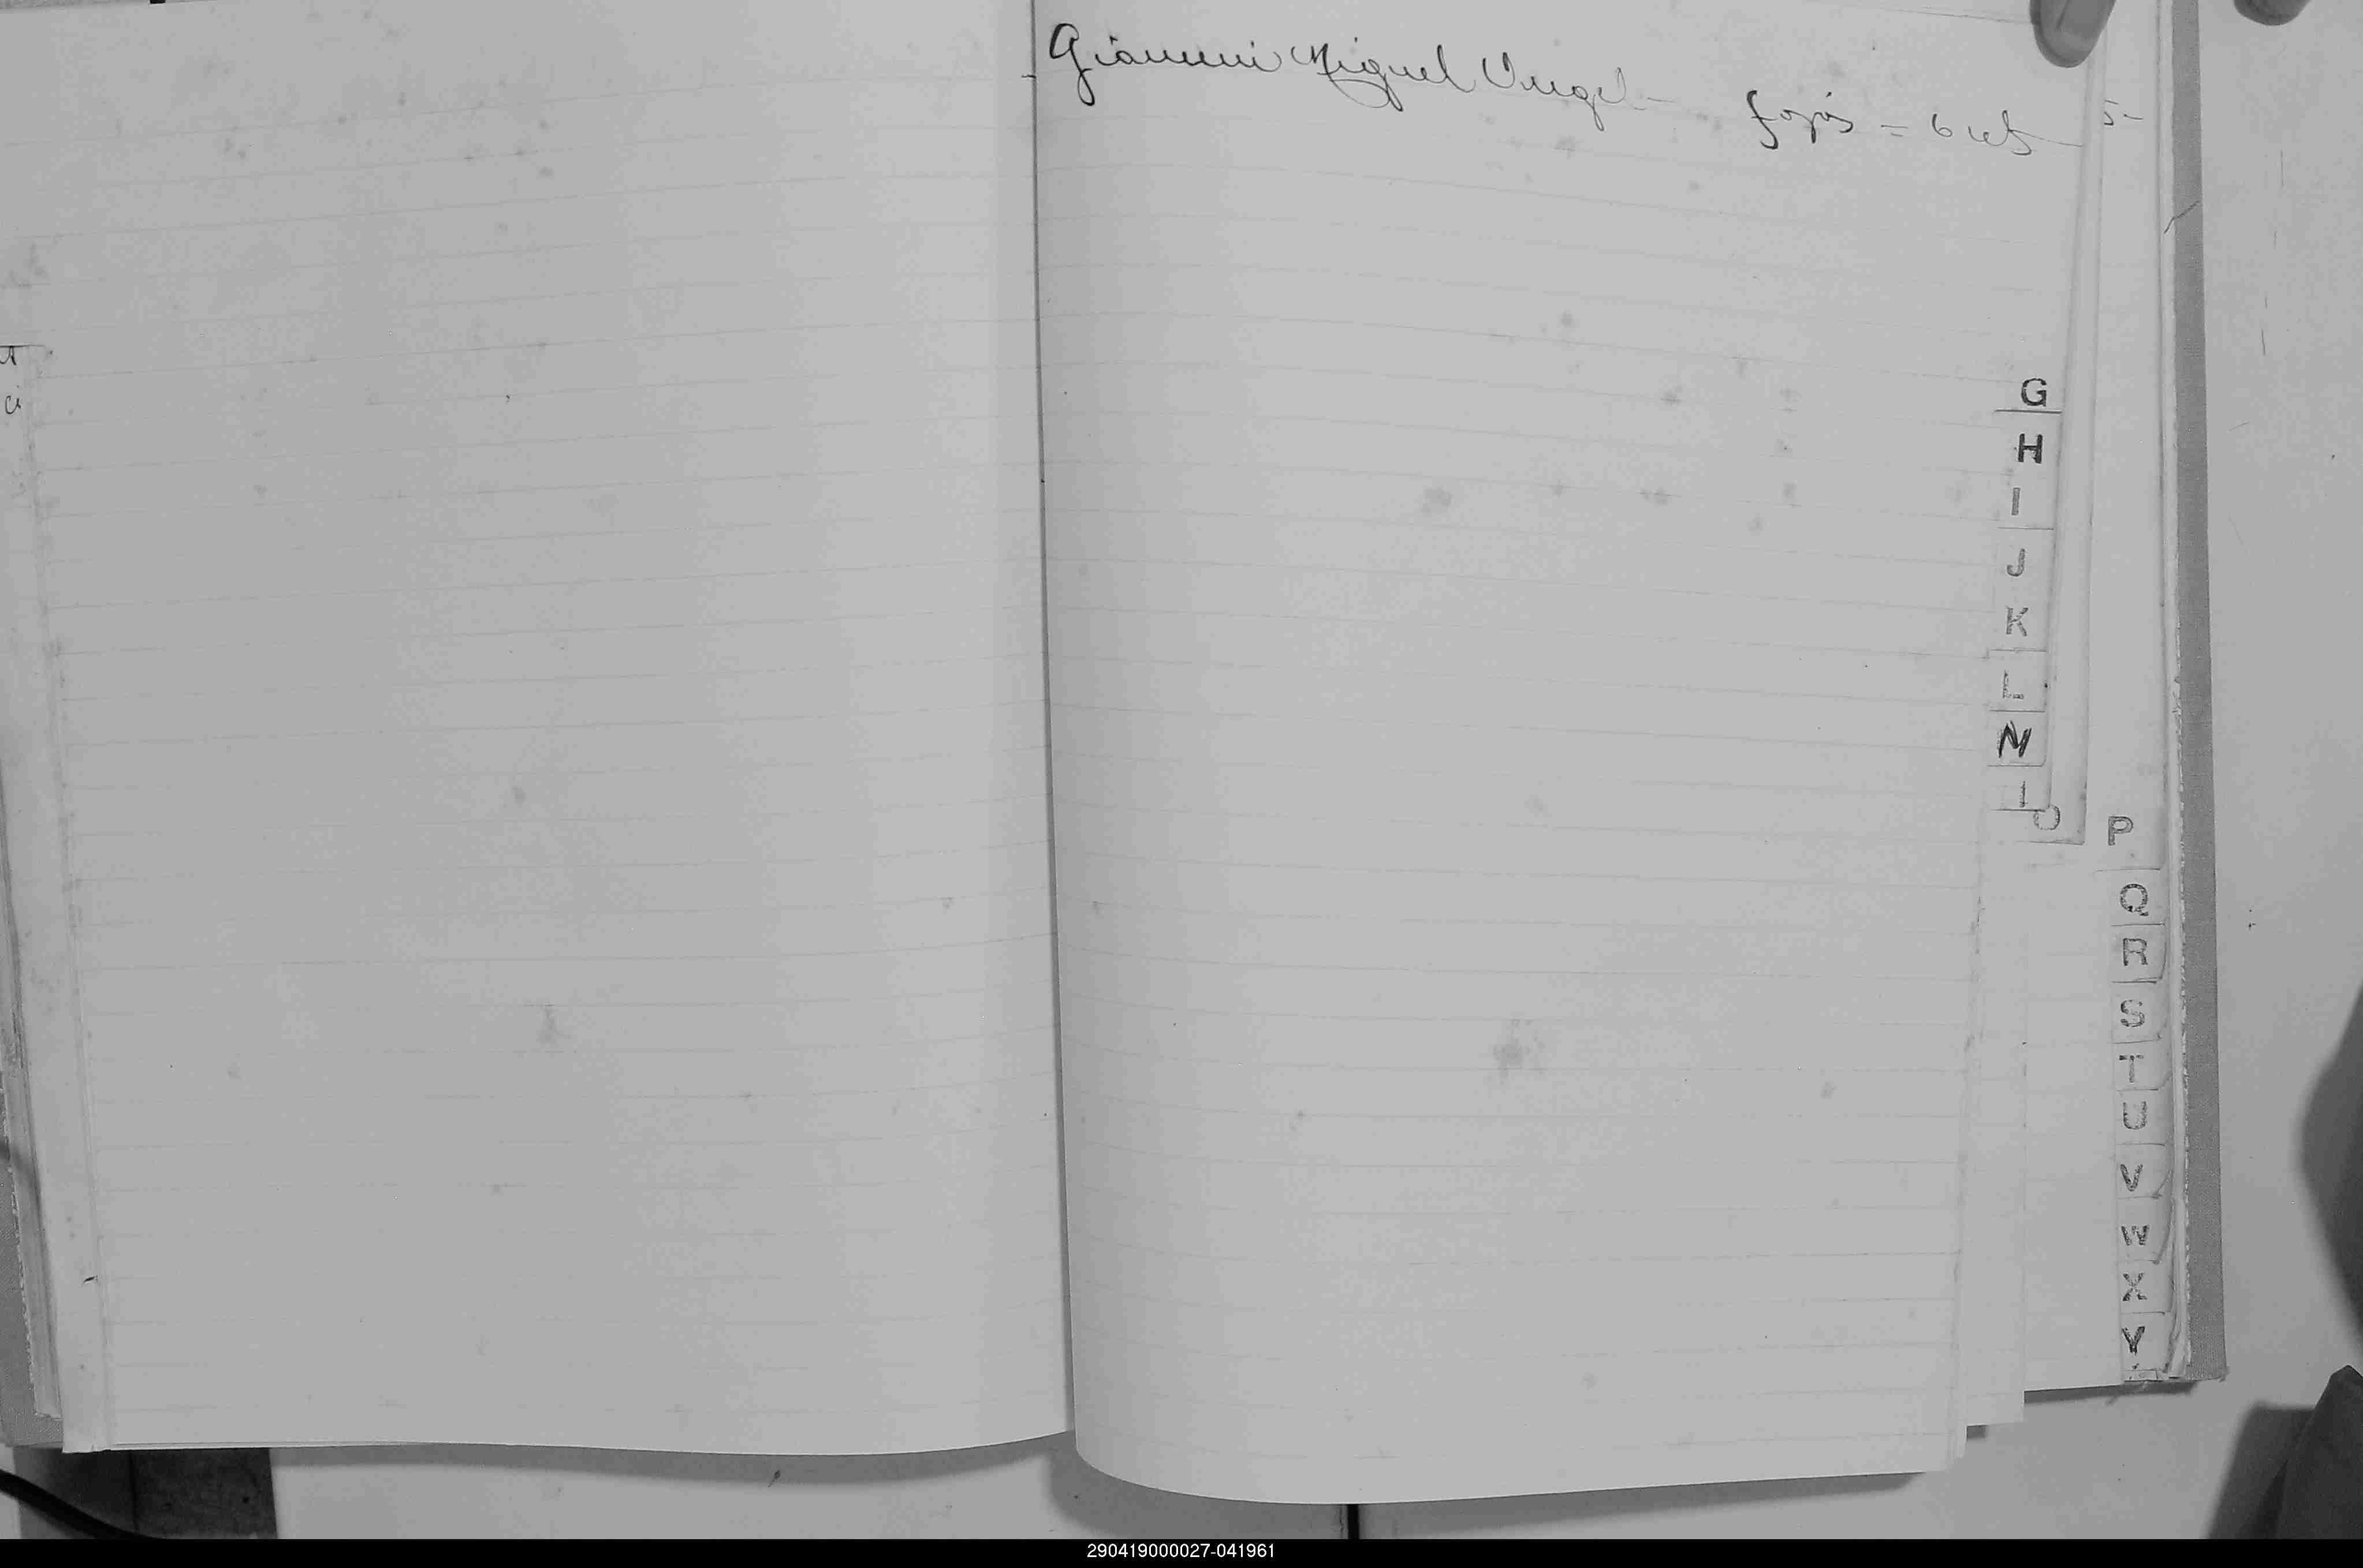 Gianni Miguel Angel
fojas = 6
G
H
I
J
K
L
N
O
P
Q
R
S
T
U
V
W
X
Y
290419000027-041961